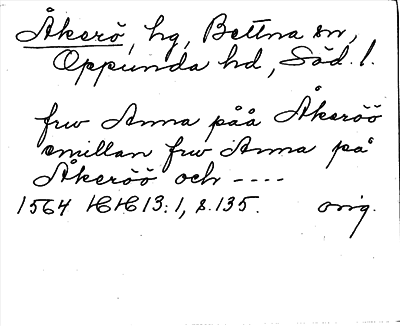 Åkerö, hg, Bettna sn,
Oppunda hd, Söd. l.
frw Anna påå Åkeröö
emillan frw Anna på
Åkeröö och ----
1564 HH 13:1, s. 135. orig.